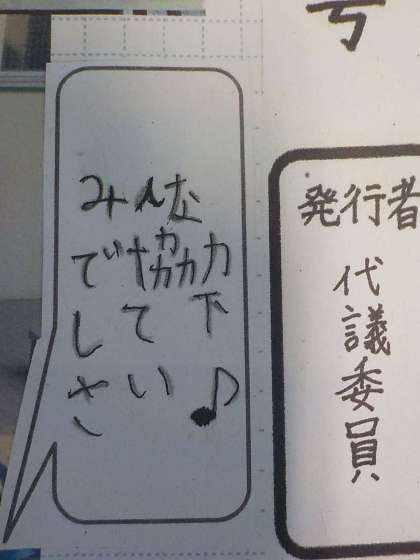 みんな
で協力
して下
さい♪
発行者
代議委員